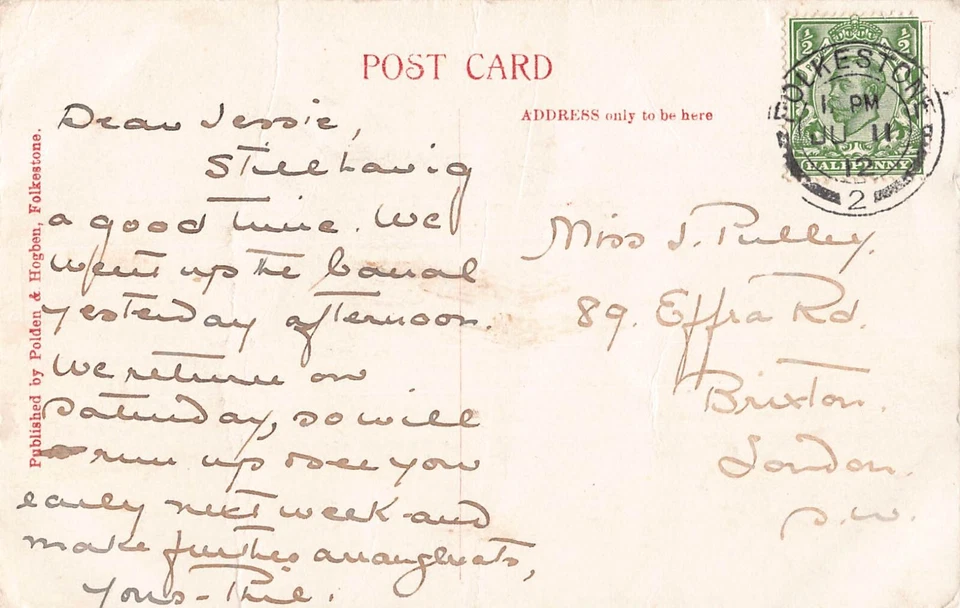 POST CARD
ADDRESS only to be here
Published by Polden & Hogben, Folkestone.
½ ½
HALFPENNY
FOLKESTONE
1 PM
JU 11
12
2
Dear Jessie,
Still havig
a good time. We
went up the Canal
yesterday afternoon.
We return on
Saturday, so will
run up & see you
early next week and
make further arrangments,
Yours - Phil.
Miss J. Pulley.
89. Effra Rd.
Brixton.
London.
S.W.